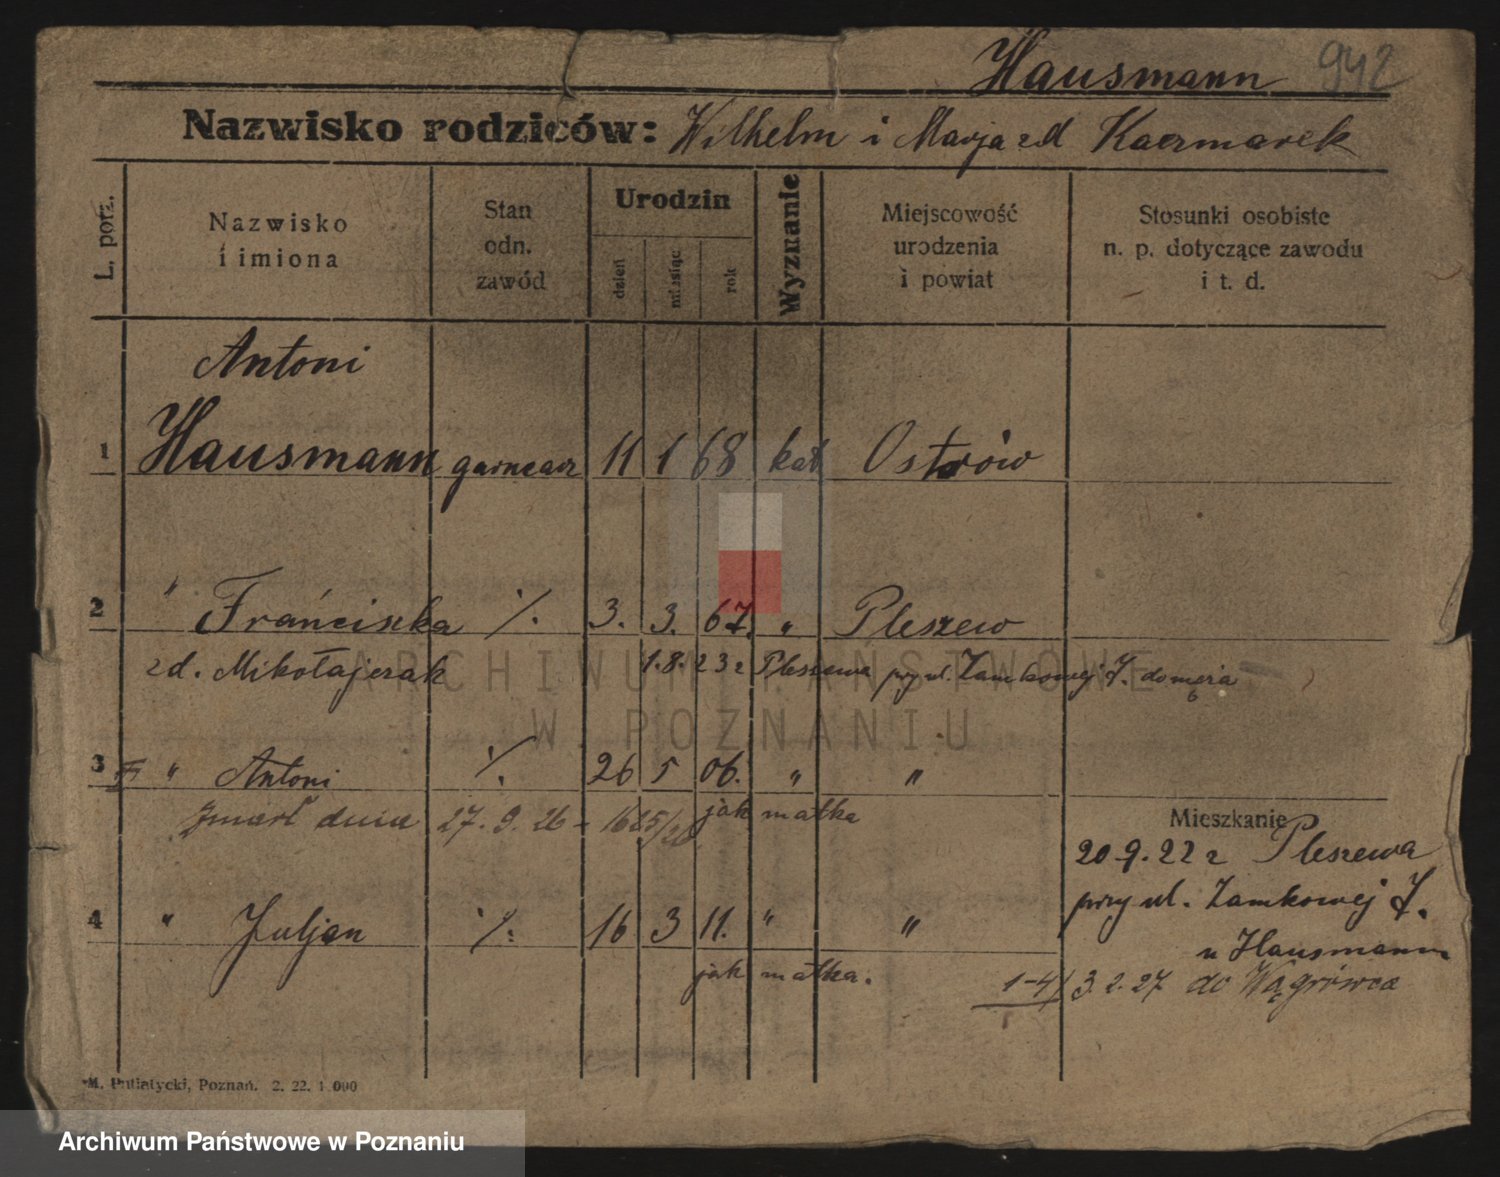 Hausmann 942
Nazwisko rodziców: Wilhelm i Marja zd Kaczmarek
L. porz.
Nazwisko
i imiona
Stan
odn.
zawód
Urodzin
dzień
miesiąc
rok
Wyznanie
Miejscowość
urodzenia
i powiat
Stosunki osobiste
n. p. dotyczące zawodu
i t. d.
Antoni
1 Hausmann garncarz 11 1 68 kat Ostrów
2 " Franciszka ·/. 3. 3. 67. " Pleszew
zd. Mikołajczak 1.8.23 z Pleszewa przy ul. Zamkowej 7. do męża
3 " Antoni ·/. 26 5 06. " "
zmarł dnia 27.9.26 - 1625/26 jak matka
Mieszkanie
20 9.22 z Pleszewa
przy ul. Zamkowej 7.
4 " Juljan ·/. 16 3 11. " "
u Hausmann
jak matka.
1-4/ 3.2.27 do Wągrówca
M. Putiatycki, Poznań. 2. 22. 1.000
ARCHIWUM PAŃSTWOWE
W POZNANIU
Archiwum Państwowe w Poznaniu